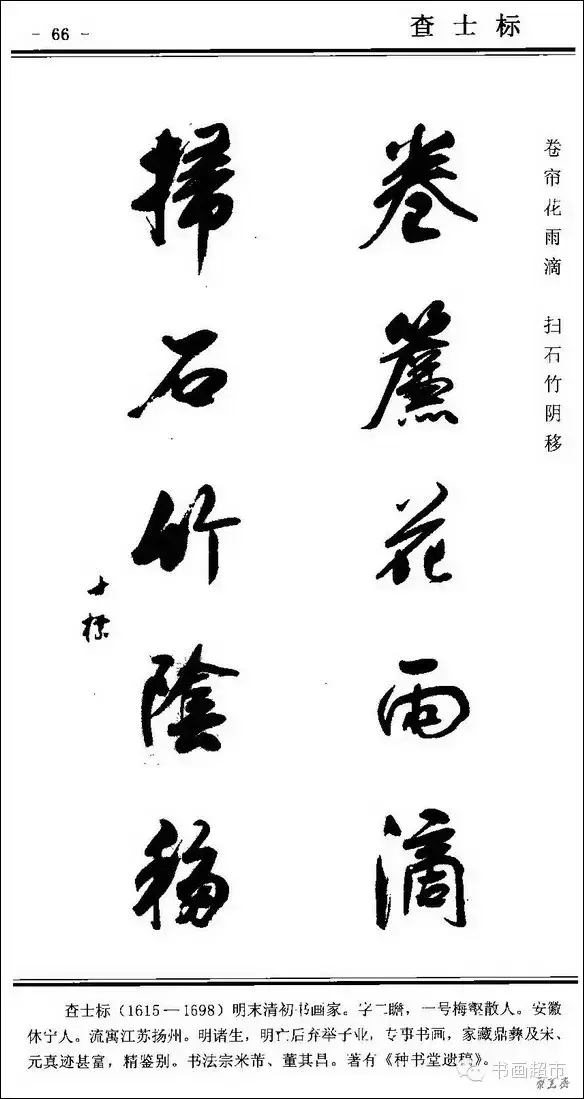 - 66 -
查士标
卷帘花雨滴 扫石竹阴移
卷簾花雨滴
掃石竹陰移
士標
查士标（1615—1698）明末清初书画家。字二瞻，一号梅壑散人。安徽
休宁人。流寓江苏扬州。明诸生，明亡后弃举子业，专事书画，家藏鼎彝及宋、
元真迹甚富，精鉴别。书法宗米芾、董其昌。著有《种书堂遗稿》。
书画超市